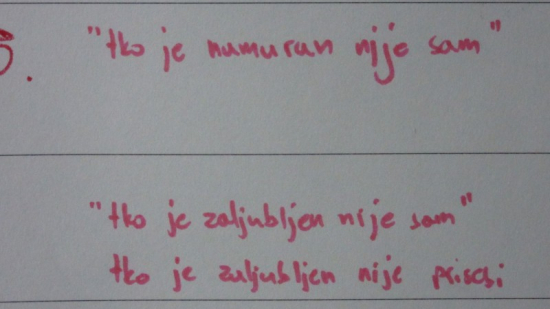 5.
"tko je numuran nije sam"
"tko je zaljubljen nije sam"
tko je zaljubljen nije prisebi